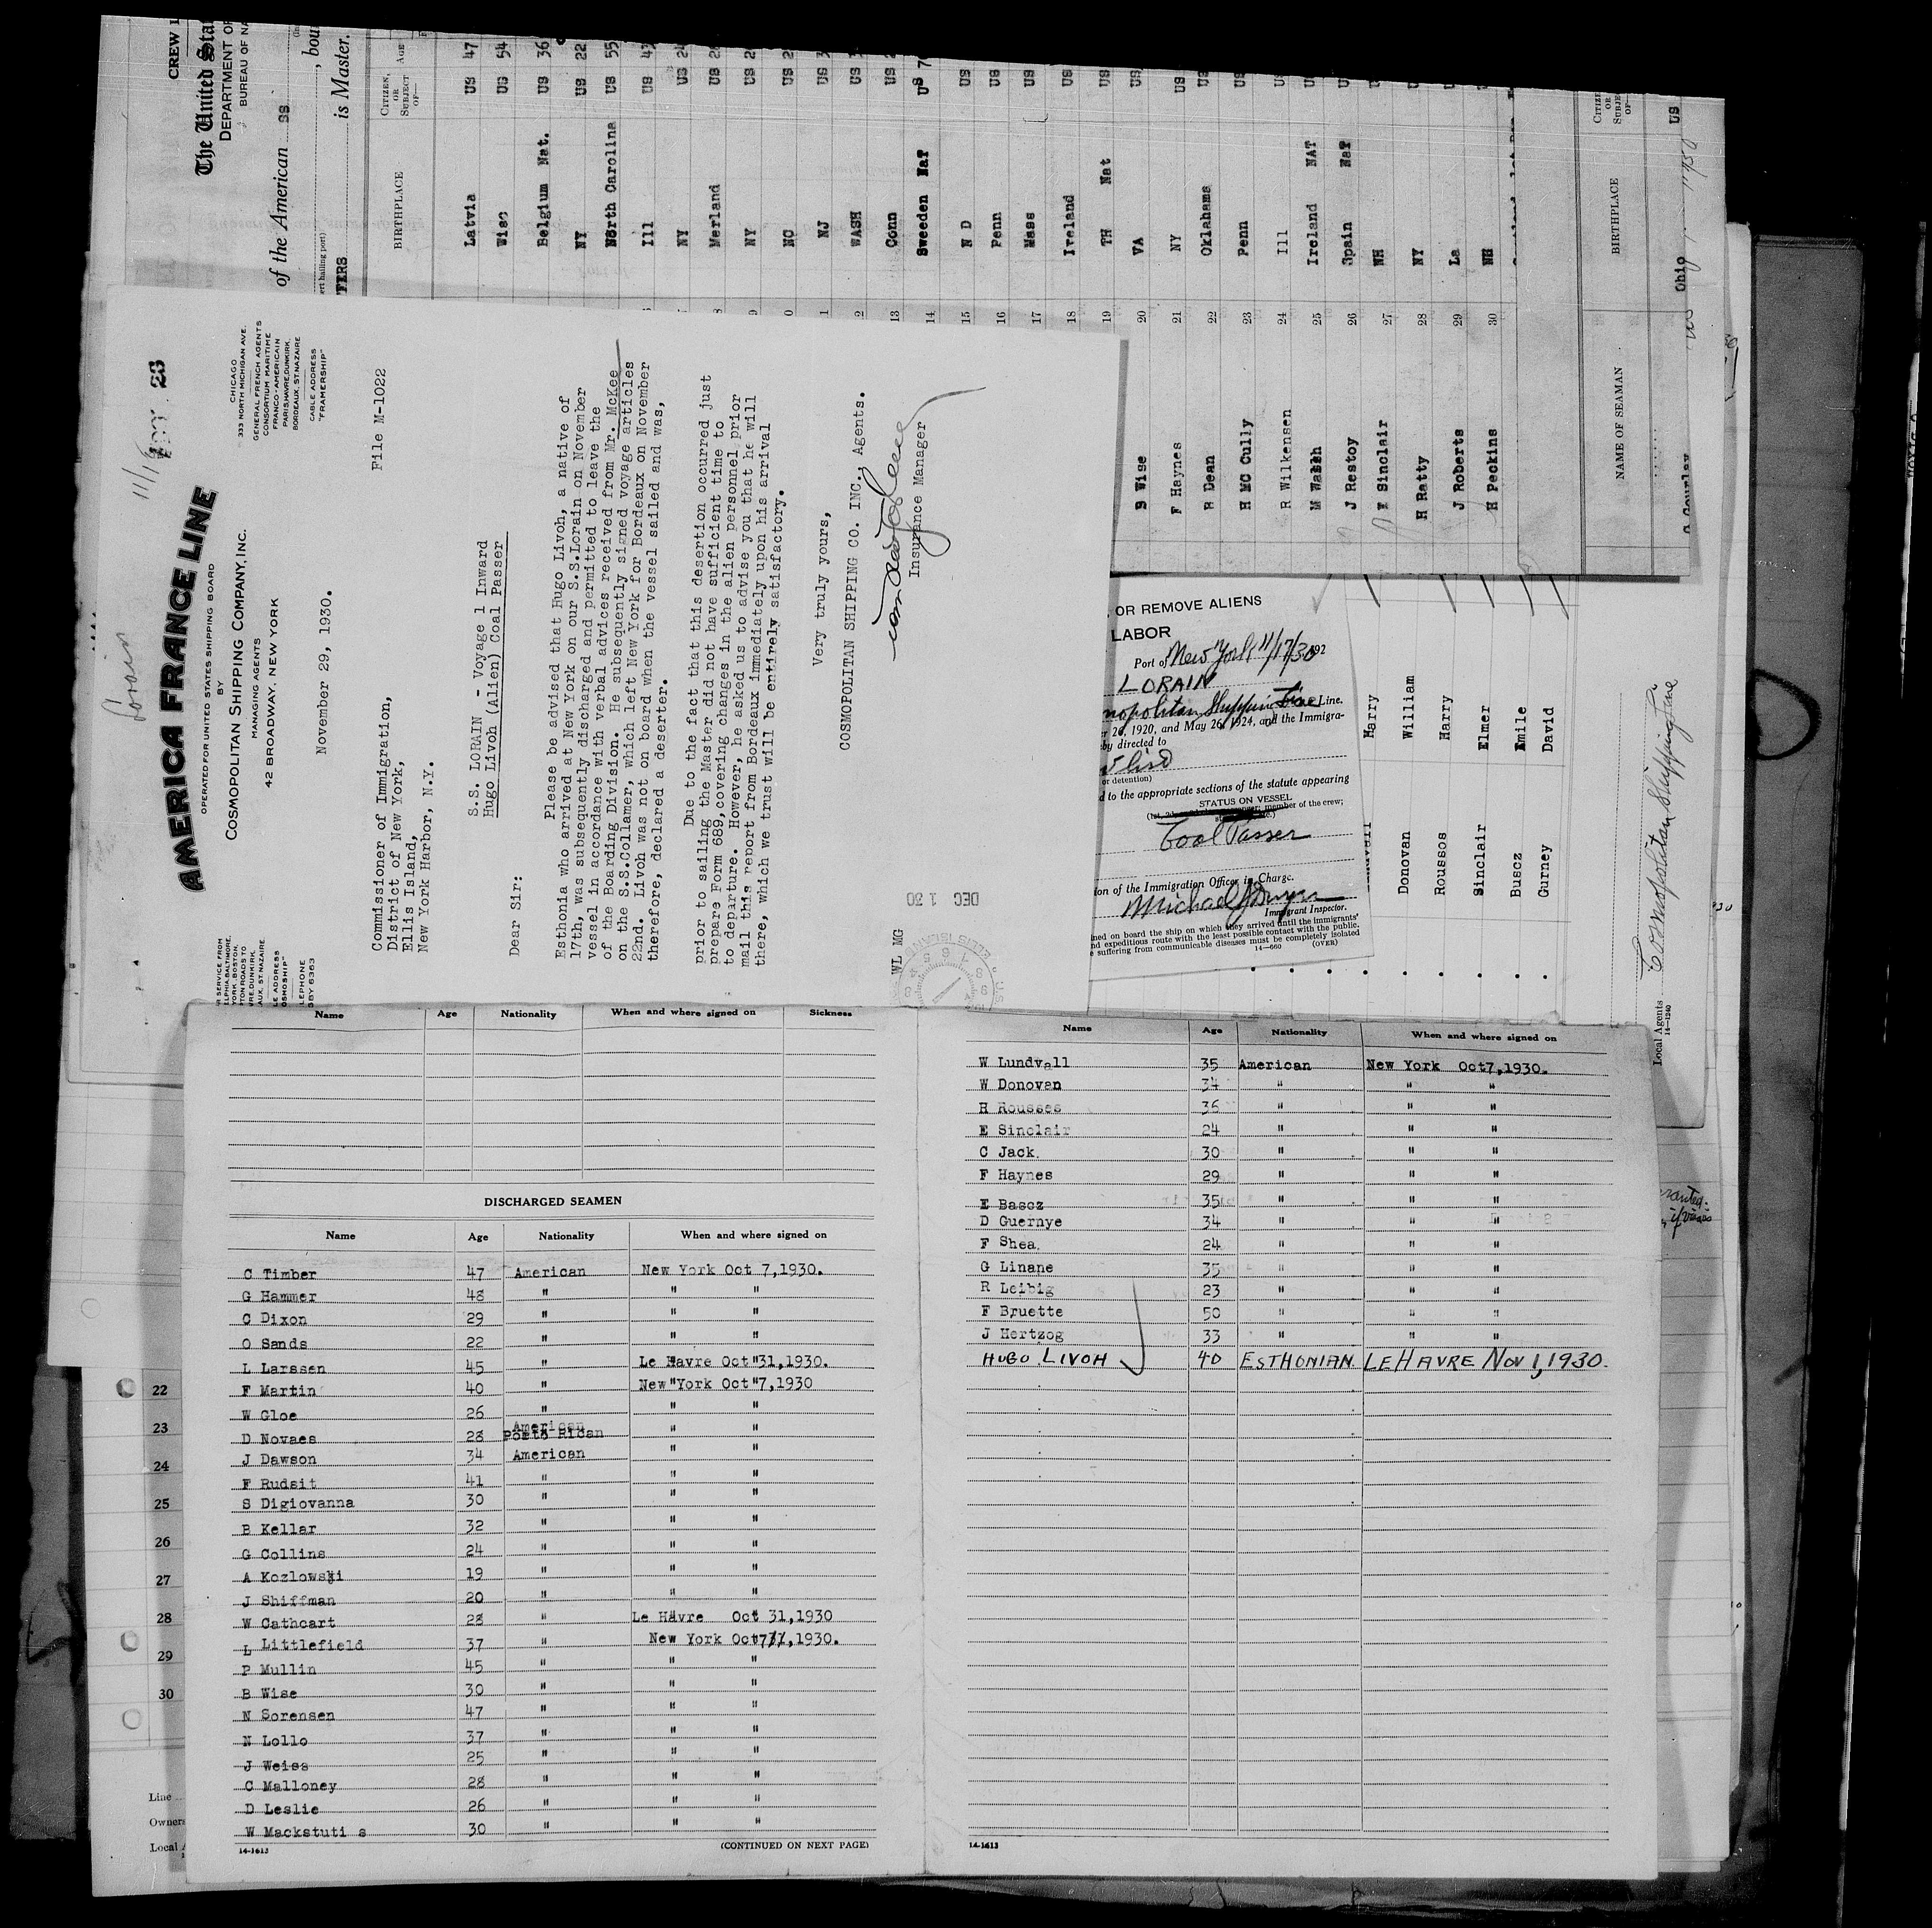 CREW
The United Sta
DEPARTMENT OF
BUREAU OF NA
of the American SS
, bou
is Master.
BIRTHPLACE CITIZEN, OR SUBJECT OF— AGE
Latvia US 47
Wisc US 54
Belgium Nat. US 36
NY US 22
North Carolina US 55
Ill US
NY US
Merland US
NY US
NC US
NJ US
WASH US
Conn US
14 Sweeden Nat US
15 N D US
16 Penn US
17 Mass US
18 Ireland US
19 TH Nat US
B Wise 20 VA US
F Haynes 21 NY US
R Dean 22 Oklahama US
H MC Cully 23 Penn US
R Wilkensen 24 Ill
M Walsh 25 Ireland NAT
J Restoy 26 Spain Nat
E Sinclair 27 NH
H Ratty 28 NY
J Roberts 29 La
H Peckins 30 NH
NAME OF SEAMAN BIRTHPLACE
Ohio US
Lorain
11/16
AMERICA FRANCE LINE
OPERATED FOR UNITED STATES SHIPPING BOARD
BY
COSMOPOLITAN SHIPPING COMPANY, INC.
MANAGING AGENTS
42 BROADWAY, NEW YORK
CHICAGO
333 NORTH MICHIGAN AVE.
GENERAL FRENCH AGENTS
CONSORTIUM MARITIME
FRANCO-AMERICAIN
PARIS, HAVRE, DUNKIRK,
BORDEAUX, ST. NAZAIRE
CABLE ADDRESS
"FRAMERSHIP"
November 29, 1930.
File M-1022
Commissioner of Immigration,
District of New York,
Ellis Island,
New York Harbor, N.Y.
S.S. LORAIN - Voyage 1 Inward
Hugo Livoh (Alien) Coal Passer
Dear Sir:
Please be advised that Hugo Livoh, a native of
Esthonia who arrived at New York on our S.S.Lorain on November
17th, was subsequently discharged and permitted to leave the
vessel in accordance with verbal advices received from Mr. McKee
of the Boarding Division. He subsequently signed voyage articles
on the S.S.Collamer, which left New York for Bordeaux on November
22nd. Livoh was not on board when the vessel sailed and was,
therefore, declared a deserter.
Due to the fact that this desertion occurred just
prior to sailing the Master did not have sufficient time to
prepare Form 689, covering changes in the alien personnel prior
to departure. However, he asked us to advise you that he will
mail this report from Bordeaux immediately upon his arrival
there, which we trust will be entirely satisfactory.
Very truly yours,
COSMOPOLITAN SHIPPING CO. INC., Agents.
Insurance Manager
WL MG
DEC 1 30
OR REMOVE ALIENS
LABOR
Port of New York 11/17/30 192
LORAIN
Line.
26, 1920, and May 26, 1924, and the Immigra-
by directed to
or detention)
d to the appropriate sections of the statute appearing
STATUS ON VESSEL
member of the crew;
Cool Passer
ion of the Immigration Officer in Charge.
Immigrant Inspector.
ned on board the ship on which they arrived until the immigrants'
nd expeditious route with the least possible contact with the public.
e suffering from communicable diseases must be completely isolated
14—660 (OVER)
Harry
Donovan William
Roussos Harry
Sinclair Elmer
Buscz Emile
Gurney David
Cosmopolitan Shipping Line
Local Agents
14—1240
Name Age Nationality When and where signed on Sickness
DISCHARGED SEAMEN
Name Age Nationality When and where signed on
C Timber 47 American New York Oct 7,1930.
G Hammer 48 " " "
C Dixon 29 " " "
O Sands 22 " " "
L Larssen 45 " Le Havre Oct 31,1930.
F Martin 40 " New York Oct 7,1930
W Gloe 26 " " "
D Novaes 28 American Porto Rican " "
J Dawson 34 American " "
F Rudsit 41 " " "
S Digiovanna 30 " " "
B Kellar 32 " " "
G Collins 24 " " "
A Kozlowski 19 " " "
J Shiffman 20 " " "
W Cathcart 28 " Le Havre Oct 31,1930
L Littlefield 37 " New York Oct 7,1930.
P Mullin 45 " " "
B Wise 30 " " "
N Sorensen 47 " " "
N Lollo 37 " " "
J Weiss 25 " " "
C Malloney 28 " " "
D Leslie 26 " " "
W Mackstuti s 30 " " "
14-1613 (CONTINUED ON NEXT PAGE)
Name Age Nationality When and where signed on
W Lundvall 35 American New York Oct7,1930.
W Donovan 34 " " "
H Rousses 36 " " "
E Sinclair 24 " " "
C Jack. 30 " " "
F Haynes 29 " " "
E Bascz 35 " " "
D Guernye 34 " " "
F Shea. 24 " " "
G Linane 35 " " "
R Leibig 23 " " "
F Bruette 50 " " "
J Hertzog 33 " " "
HUGO LIVOH 40 ESTHONIAN. LE HAVRE NOV 1, 1930.
14-1613
22
23
24
25
26
27
28
29
30
Line
Owners
Local